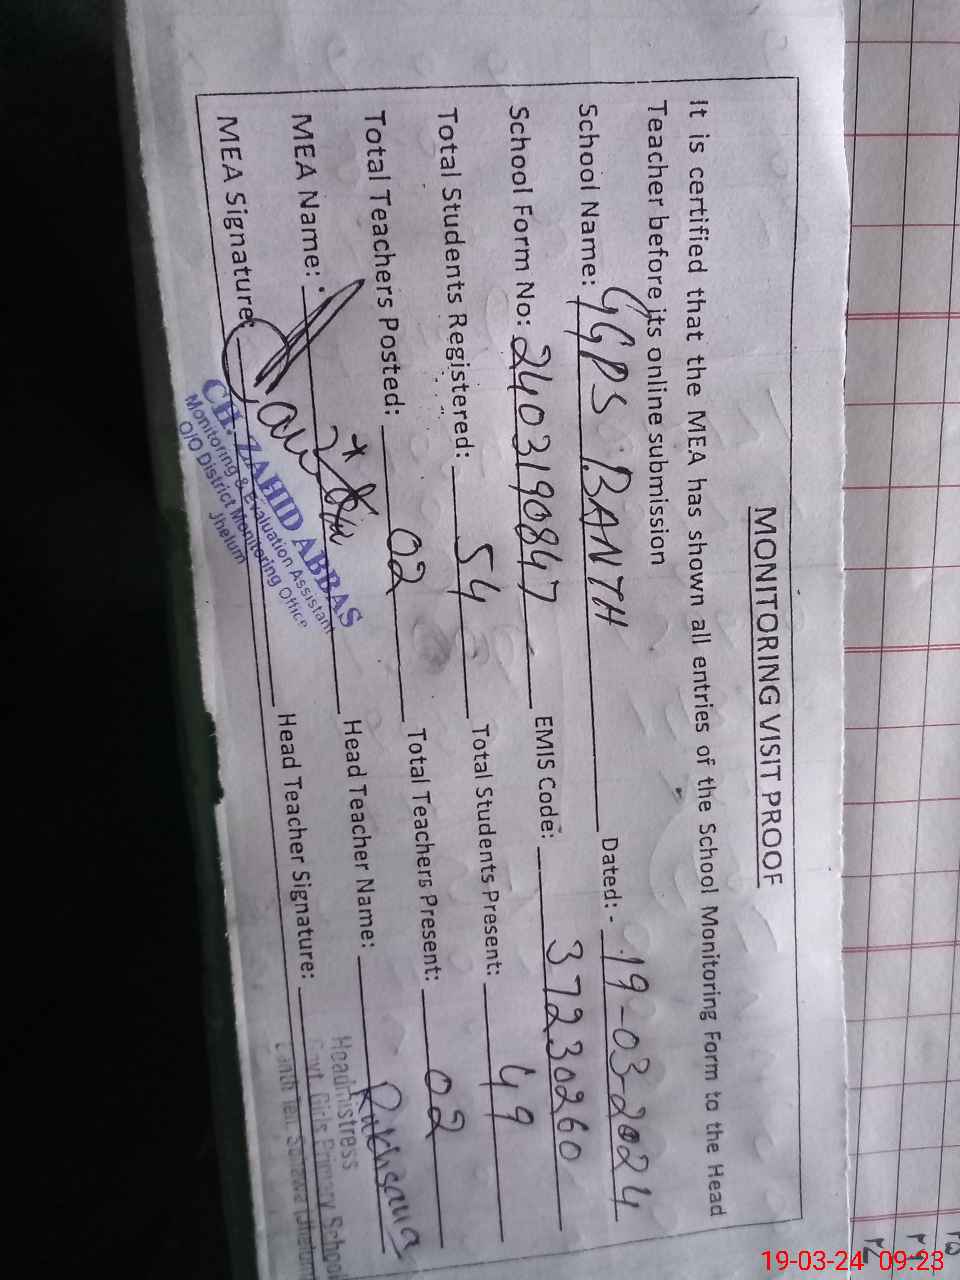 MONITORING VISIT PROOF
It is certified that the MEA has shown all entries of the School Monitoring Form to the Head
Teacher before its online submission
School Name: GGPS BANTH Dated: - 19-03-2024
School Form No: 2403190847 EMIS Code: 37230260
Total Students Registered: 54 Total Students Present: 49
Total Teachers Posted: 02 Total Teachers Present: 02
MEA Name: Head Teacher Name: Rukhsana
MEA Signature: Head Teacher Signature:
CH. ZAHID ABBAS
Monitoring & Evaluation Assistant
O/O District Monitoring Office
Jhelum
Headmistress
Govt. Girls Primary School
Banth Teh. Sohawa (Jhelum)
19-03-24 09:23